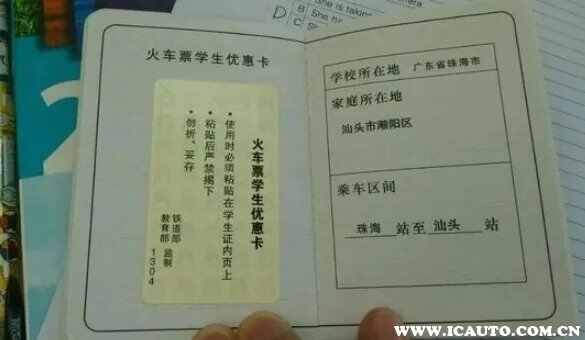 D
B
She is taking
She h
C
She
火车票学生优惠卡
火车票学生优惠卡
• 使用时必须粘贴在学生证内页上
• 粘贴后严禁揭下
• 勿折、妥存
铁道部
教育部 监制
1304
学校所在地 广东省珠海市
家庭所在地
汕头市潮阳区
乘车区间
珠海 站至 汕头 站
爱卡汽车网
WWW.ICAUTO.COM.CN